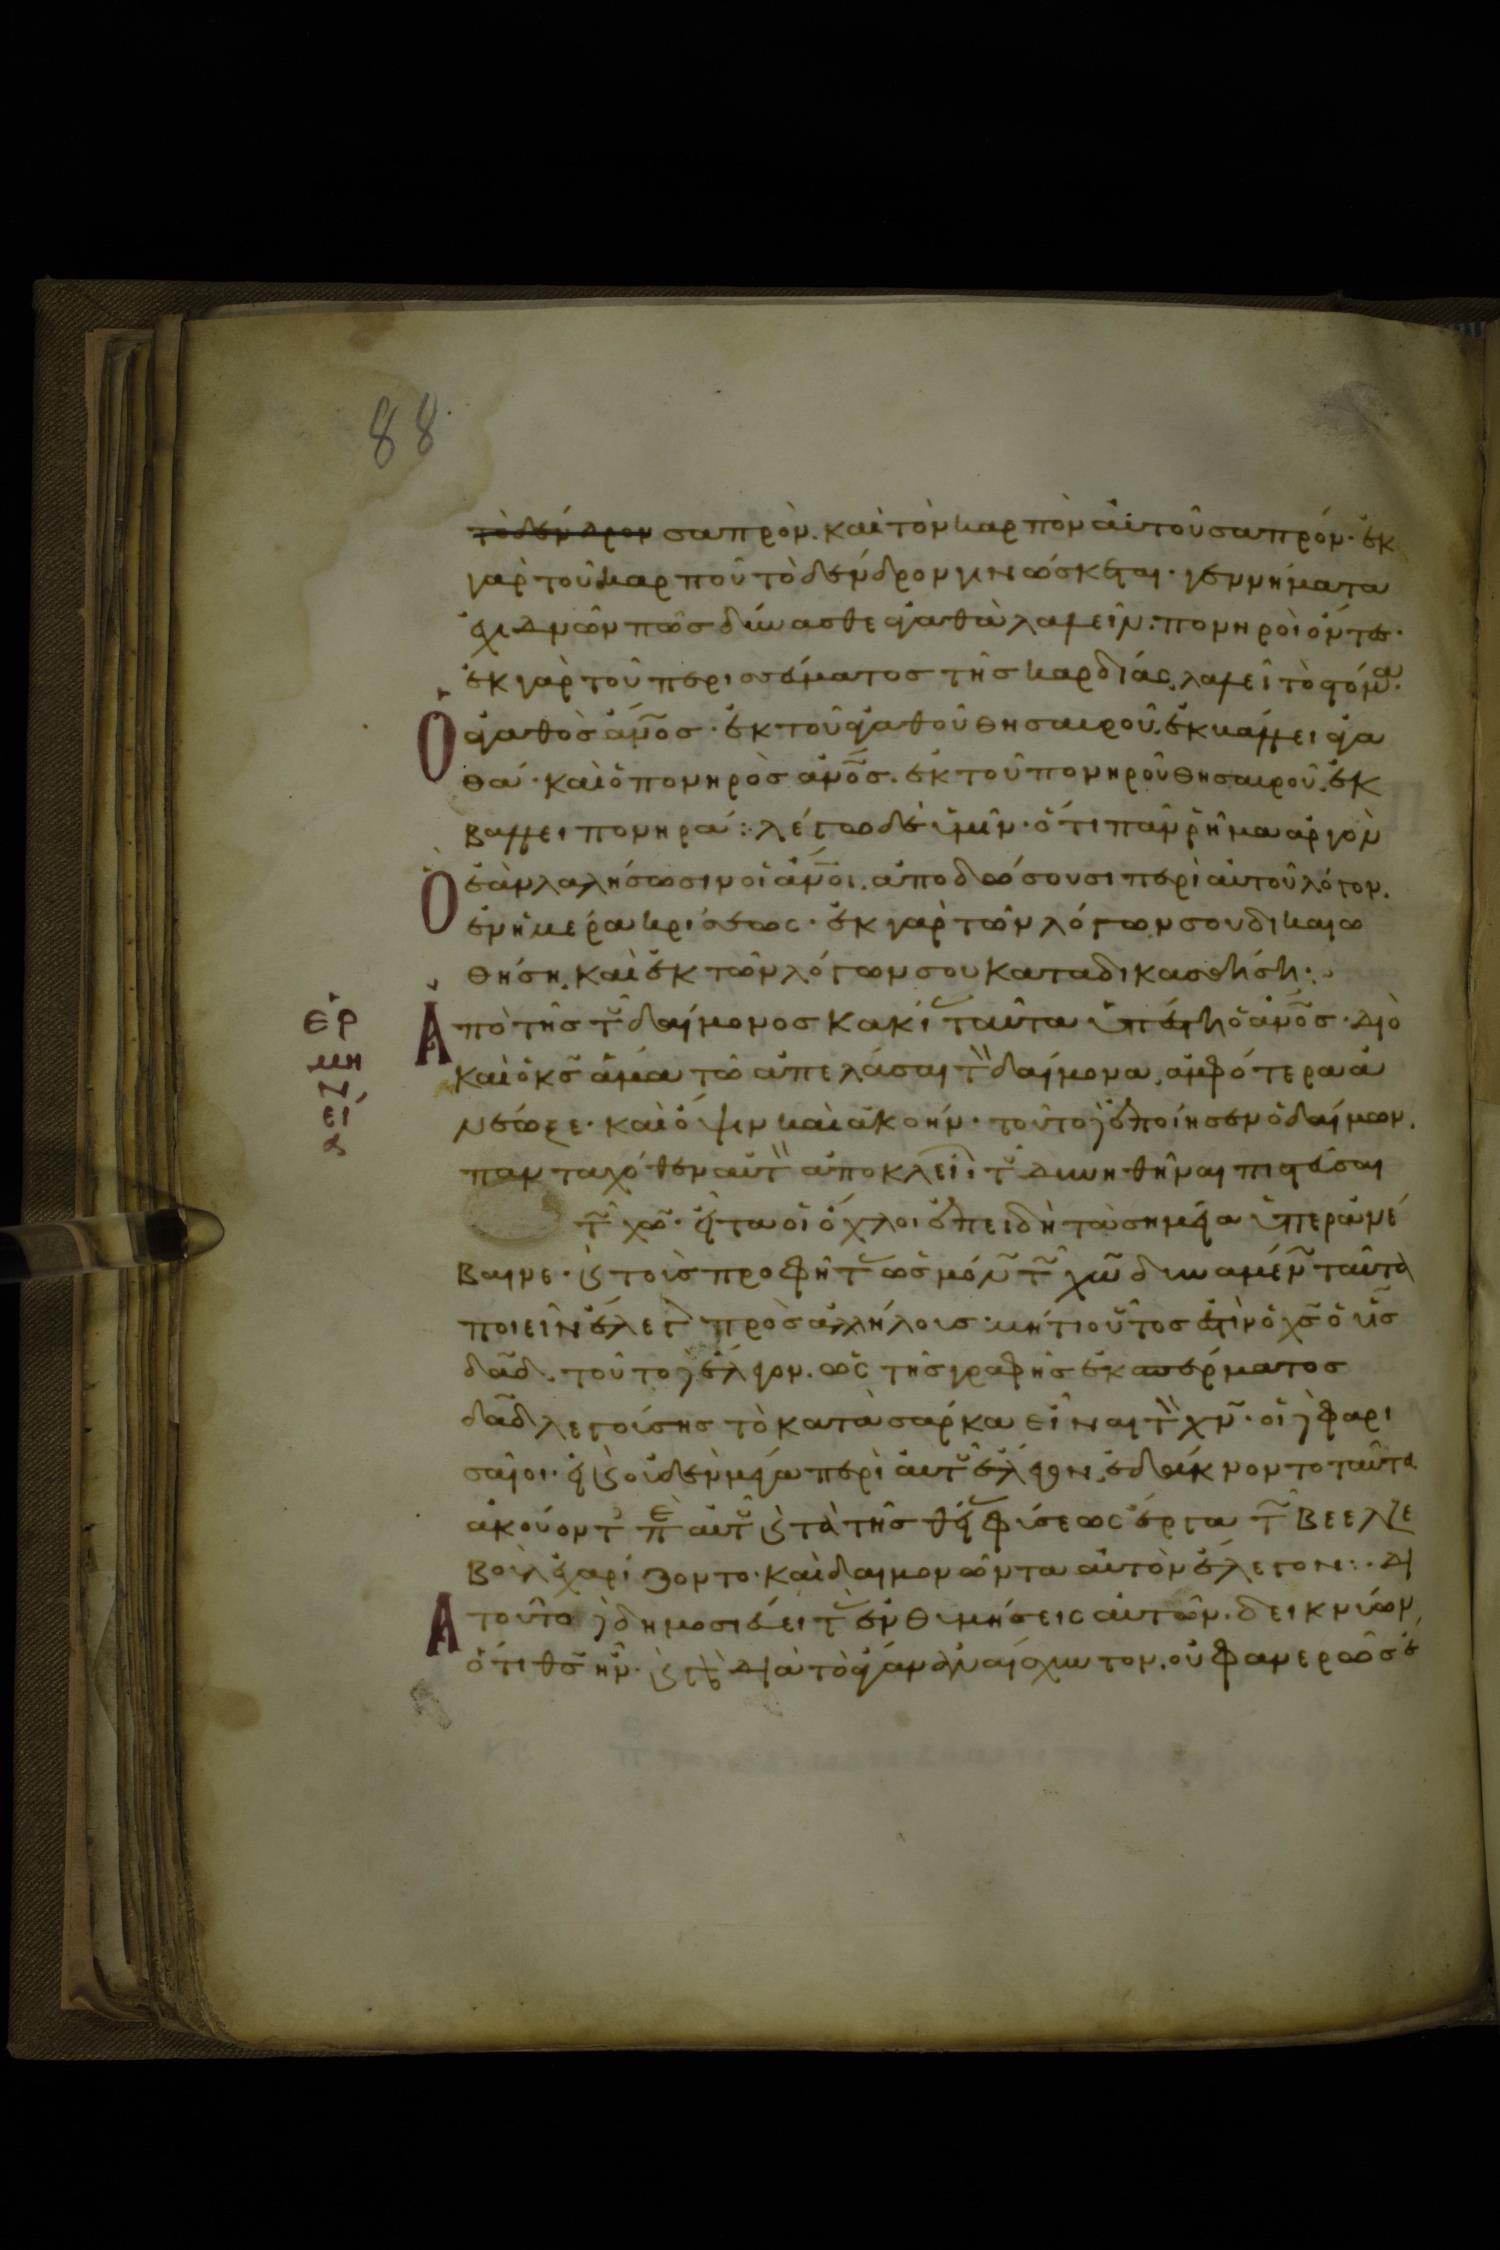 88
τὸ δένδρον σαπρὸν. καὶ τὸν καρπὸν αὐτοῦ σαπρόν· ἐκ
γὰρ τοῦ καρποῦ τὸ δένδρον γινώσκεται· γεννήματα
ἐχιδνῶν πῶς δύνασθε ἀγαθὰ λαλεῖν. πονηροὶ ὄντες·
ἐκ γὰρ τοῦ περισσεύματος τῆς καρδίας, λαλεῖ τὸ στόμα·
Ὁ ἀγαθὸς ἄνος· ἐκ τοῦ ἀγαθοῦ θησαυροῦ, ἐκβάλλει ἀγα
θά· καὶ ὁ πονηρὸς ἄνος. ἐκ τοῦ πονηροῦ θησαυροῦ, ἐκ
βάλλει πονηρά: λέγω δὲ ὑμῖν· ὅτι πᾶν ῥῆμα ἀργὸν
Ὃ ἐὰν λαλήσωσιν οἱ ἄνοι. ἀποδώσουσι περὶ αὐτοῦ λόγον.
ἐν ἡμέρα κρίσεως· ἐκ γὰρ τῶν λόγων σου δικαιω
θήση, καὶ ἐκ τῶν λόγων σου καταδικασθήση:
ΕΡ
ΜΗ
Ν
ΕΊ
Α
Ἀπὸ τῆς τοῦ δαίμονος κακί ταῦτα ὁ ἄνος· διὸ
καὶ ὁ κς ἅμα τῶ ἀπελάσαι τὸν δαίμονα, ἀμφότερα ἀ
νέωξε· καὶ ὄψιν καὶ ἀκοήν· τοῦτο ἐποίησεν ὁ δαίμων,
πανταχόθεν αὐτὸν ἀποκλείων τοῦ δυνηθῆναι πιστεῦσαι
τῶ χω· εἶτα οἱ ὄχλοι ἐπειδὴ τὰ σημεῖα ὑπερανέ
βαινε· καὶ τοὺς προφήτας ὡς μόνου τοῦ χυ δυναμένου ταῦτα
ποιεῖν ἔλεγον πρὸς ἀλλήλους· μήτι οὗτος ἐστὶν ὁ χς ὁ υς
δαδ. τοῦτο ἔλεγον. ὡς τῆς γραφῆς ἐκ σπέρματος
δαδ λεγούσης τὸ κατὰ σάρκα εἶναι τὸν χν· οἱ φαρι
σαῖοι· εἰ καὶ οὐδὲν μέγα περὶ αὐτοῦ ἔλεγον, ἐδάκνοντο ταῦτα
ἀκούοντες περὶ αὐτοῦ καὶ τὰ τῆς θείας φύσεως ἔργα τῶ βεελζε
βοὺλ ἐχαρίζοντο· καὶ δαιμονῶντα αὐτὸν ἔλεγον:· Δι
Ἀ τοῦτο δημοσιεύει τὰς ἐνθυμήσεις αὐτῶν. δεικνύων,
ὅτι θς ἦν· διὰ τὸ ἄγαν ἀναίσχυντον. οὐ φανερῶς ἐ